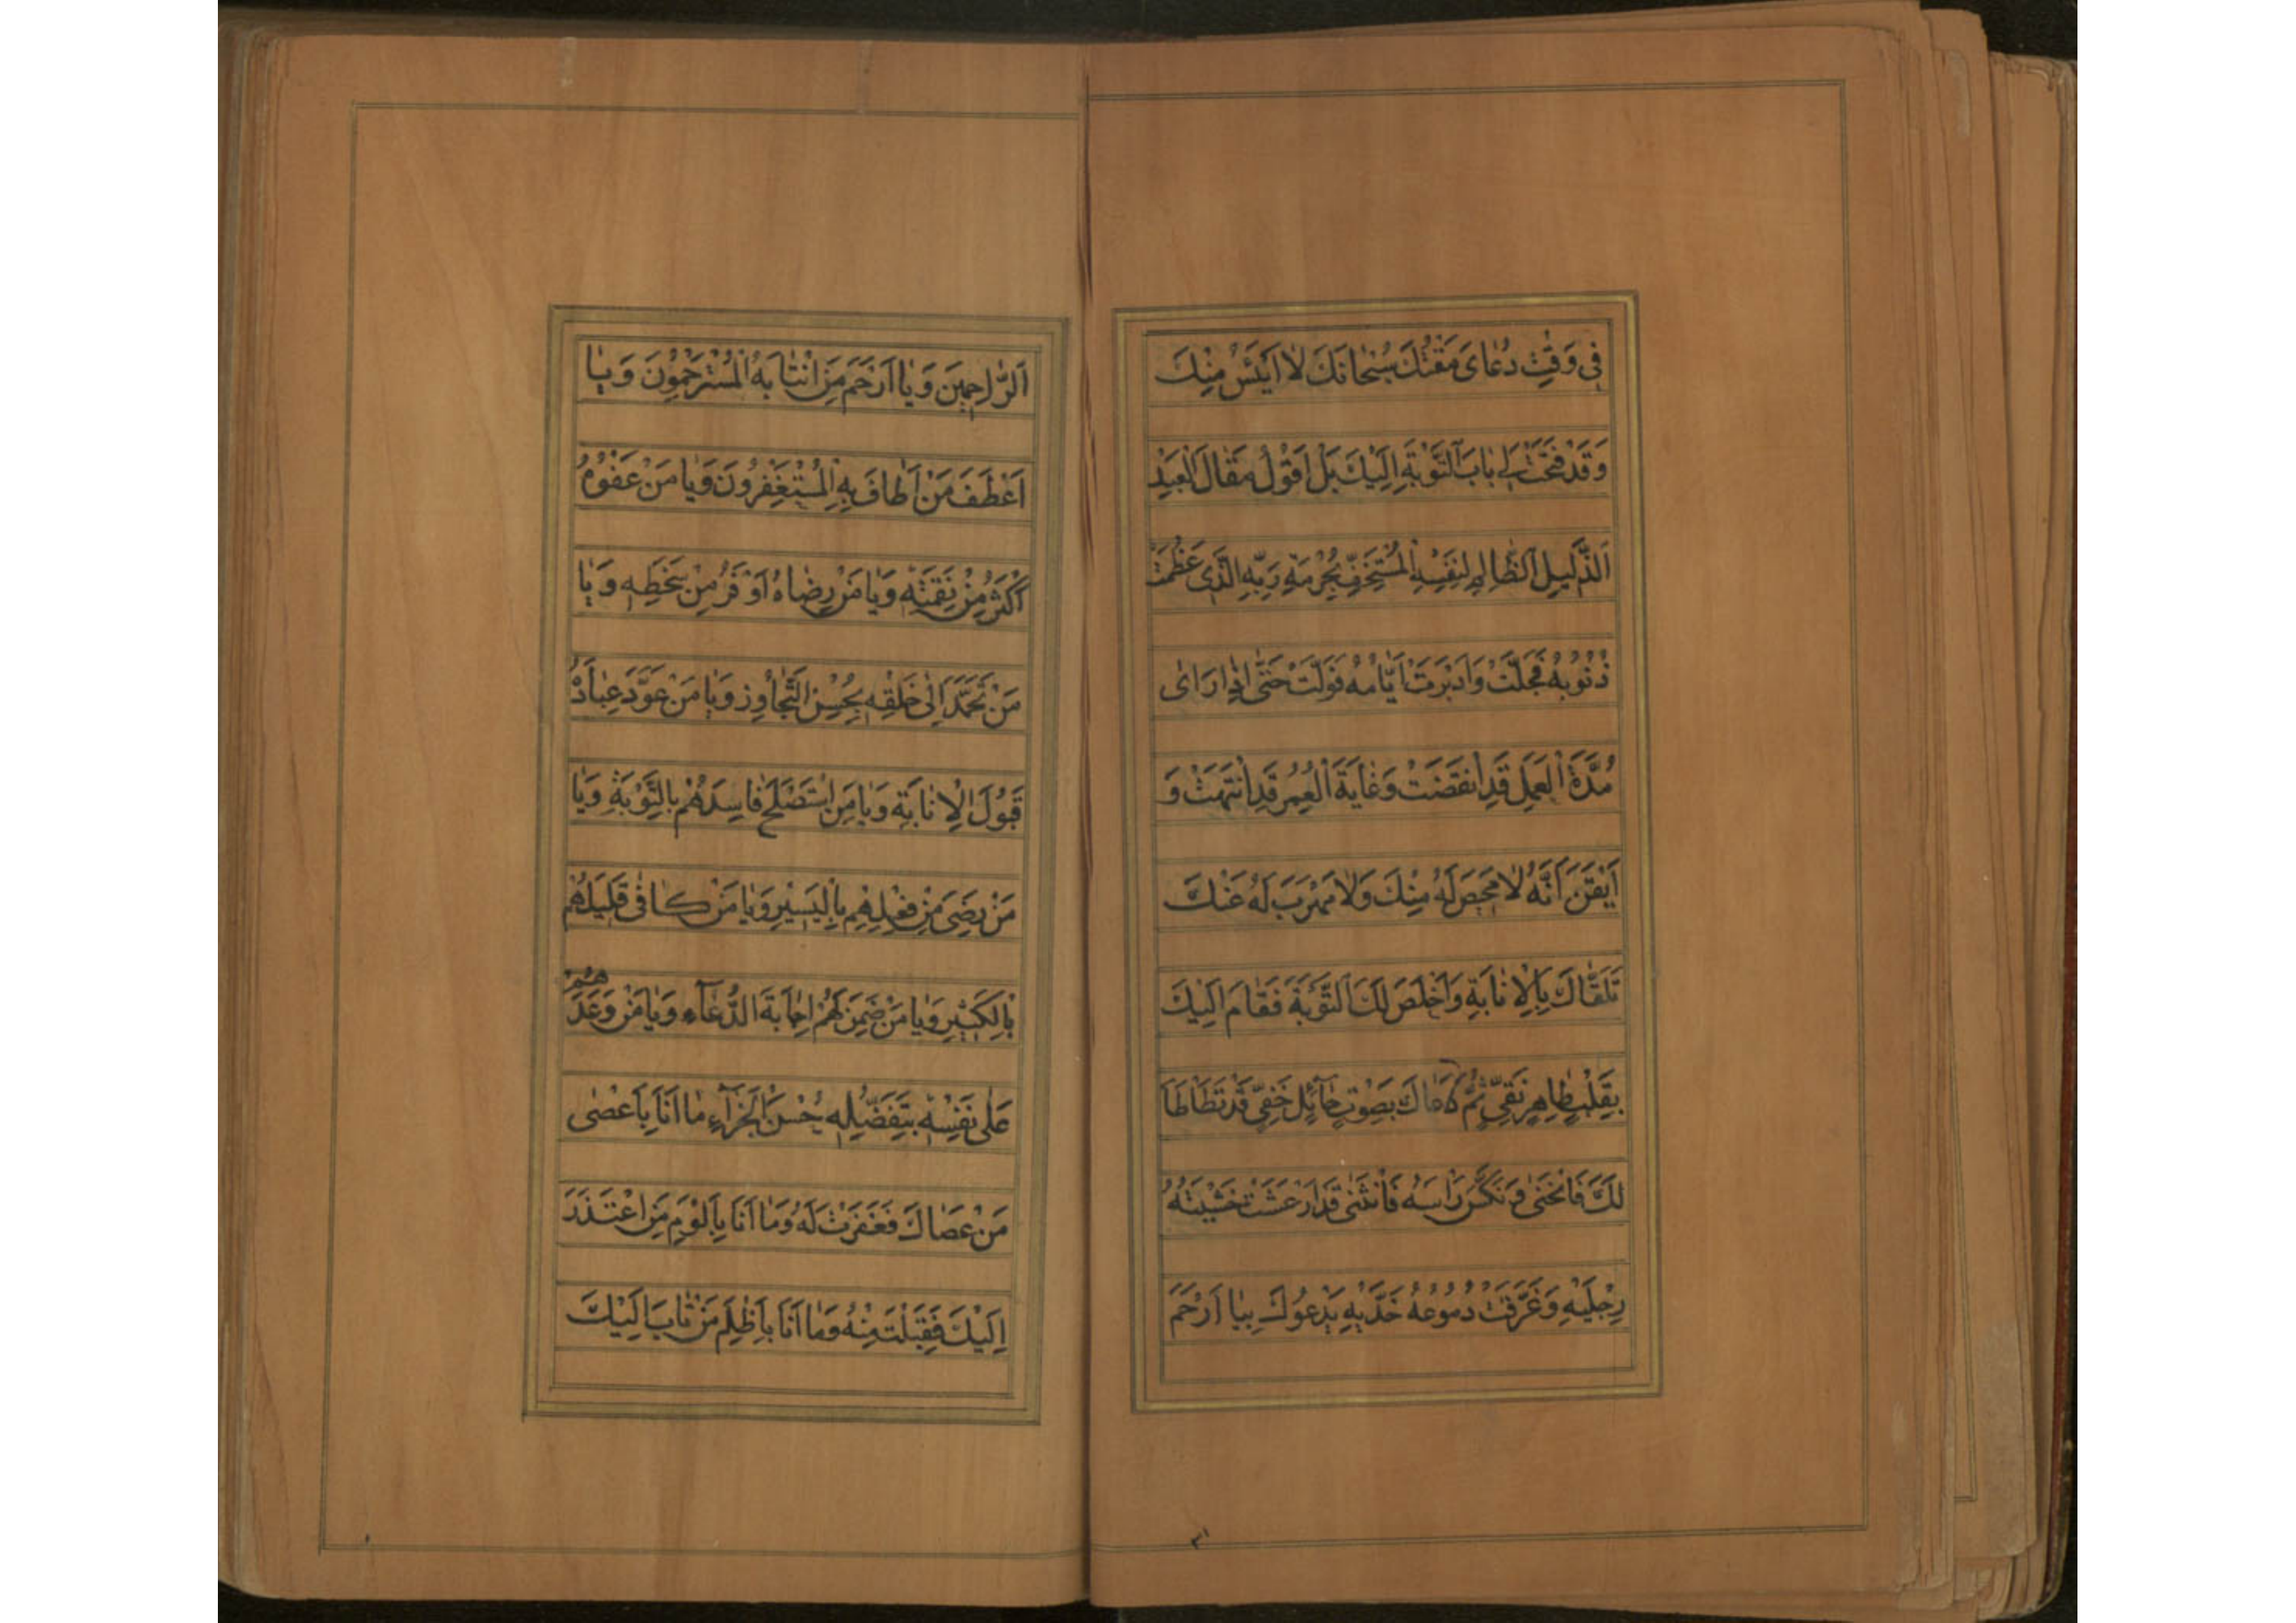 فِي وَقْتِ دُعَايَ مَقْتُكَ سُبْحَانَكَ لَا اَيْئَسُ مِنْكَ
وَقَدْ فَتَحْتَ لِي بَابَ التَّوْبَةِ اِلَيْكَ بَلْ اَقُوْلُ مَقَالَ الْعَبْدِ
اَلذَّلِيلِ الظَّالِمِ لِنَفْسِهِ الْمُسْتَخِفِّ بِحُرْمَةِ رَبِّهِ الَّذِي عَظُمَتْ
ذُنُوبُهُ فَجَلَّتْ وَاَدْبَرَتْ اَيَّامُهُ فَوَلَّتْ حَتّٰى اِذَا رَاٰى
مُدَّةَ الْعَمَلِ قَدِ انْقَضَتْ وَغَايَةَ الْعُمُرِ قَدِ انْتَهَتْ وَ
اَيْقَنَ اَنَّهُ لَا مَحِيصَ لَهُ مِنْكَ وَلَا مَهْرَبَ لَهُ عَنْكَ
تَلَقَّاكَ بِالْاِنَابَةِ وَاَخْلَصَ لَكَ التَّوْبَةَ فَقَامَ اِلَيْكَ
بِقَلْبٍ طَاهِرٍ نَقِيٍّ ثُمَّ دَعَاكَ بِصَوْتٍ حَآئِلٍ خَفِيٍّ قَدْ تَطَاْطَاَ
لَكَ فَانْحَنٰى وَ نَكَّسَ رَاْسَهُ فَانْثَنٰى قَدْ اَرْعَشَتْ خَشْيَتُهُ
رِجْلَيْهِ وَغَرَّقَتْ دُمُوعُهُ خَدَّيْهِ يَدْعُوكَ بِيَا اَرْحَمَ
اَلرَّاحِمِينَ وَيَا اَرْحَمَ مَنِ انْتَابَهُ الْمُسْتَرْحِمُوْنَ وَيَا
اَعْطَفَ مَنْ اَطَافَ بِهِ الْمُسْتَغْفِرُونَ وَيَا مَنْ عَفْوُهُ
اَكْثَرُ مِنْ نَقِمَتِهِ وَيَا مَنْ رِضَاهُ اَوْفَرُ مِنْ سَخَطِهِ وَيَا
مَنْ تَحَمَّدَ اِلٰى خَلْقِهِ بِحُسْنِ التَّجَاوُزِ وَيَا مَنْ عَوَّدَ عِبَادَهُ
قَبُوْلَ الْاِنَابَةِ وَيَا مَنِ اسْتَصْلَحَ فَاسِدَهُمْ بِالتَّوْبَةِ وَيَا
مَنْ رَضِيَ مِنْ فِعْلِهِمْ بِالْيَسِيْرِ وَيَا مَنْ كَافٰى قَلِيْلَهُمْ
بِالْكَثِيْرِ وَيَا مَنْ ضَمِنَ لَهُمْ اِجَابَةَ الدُّعَآءِ وَيَا مَنْ وَعَدَهُمْ
عَلٰى نَفْسِهِ بِتَفَضُّلِهِ حُسْنَ الْجَزَآءِ مَا اَنَا بِاَعْصٰى
مَنْ عَصَاكَ فَغَفَرْتَ لَهُ وَمَا اَنَا بِاَلْوَمِ مَنِ اعْتَذَرَ
اِلَيْكَ فَقَبِلْتَ مِنْهُ وَمَا اَنَا بِاَظْلَمِ مَنْ تَابَ اِلَيْكَ